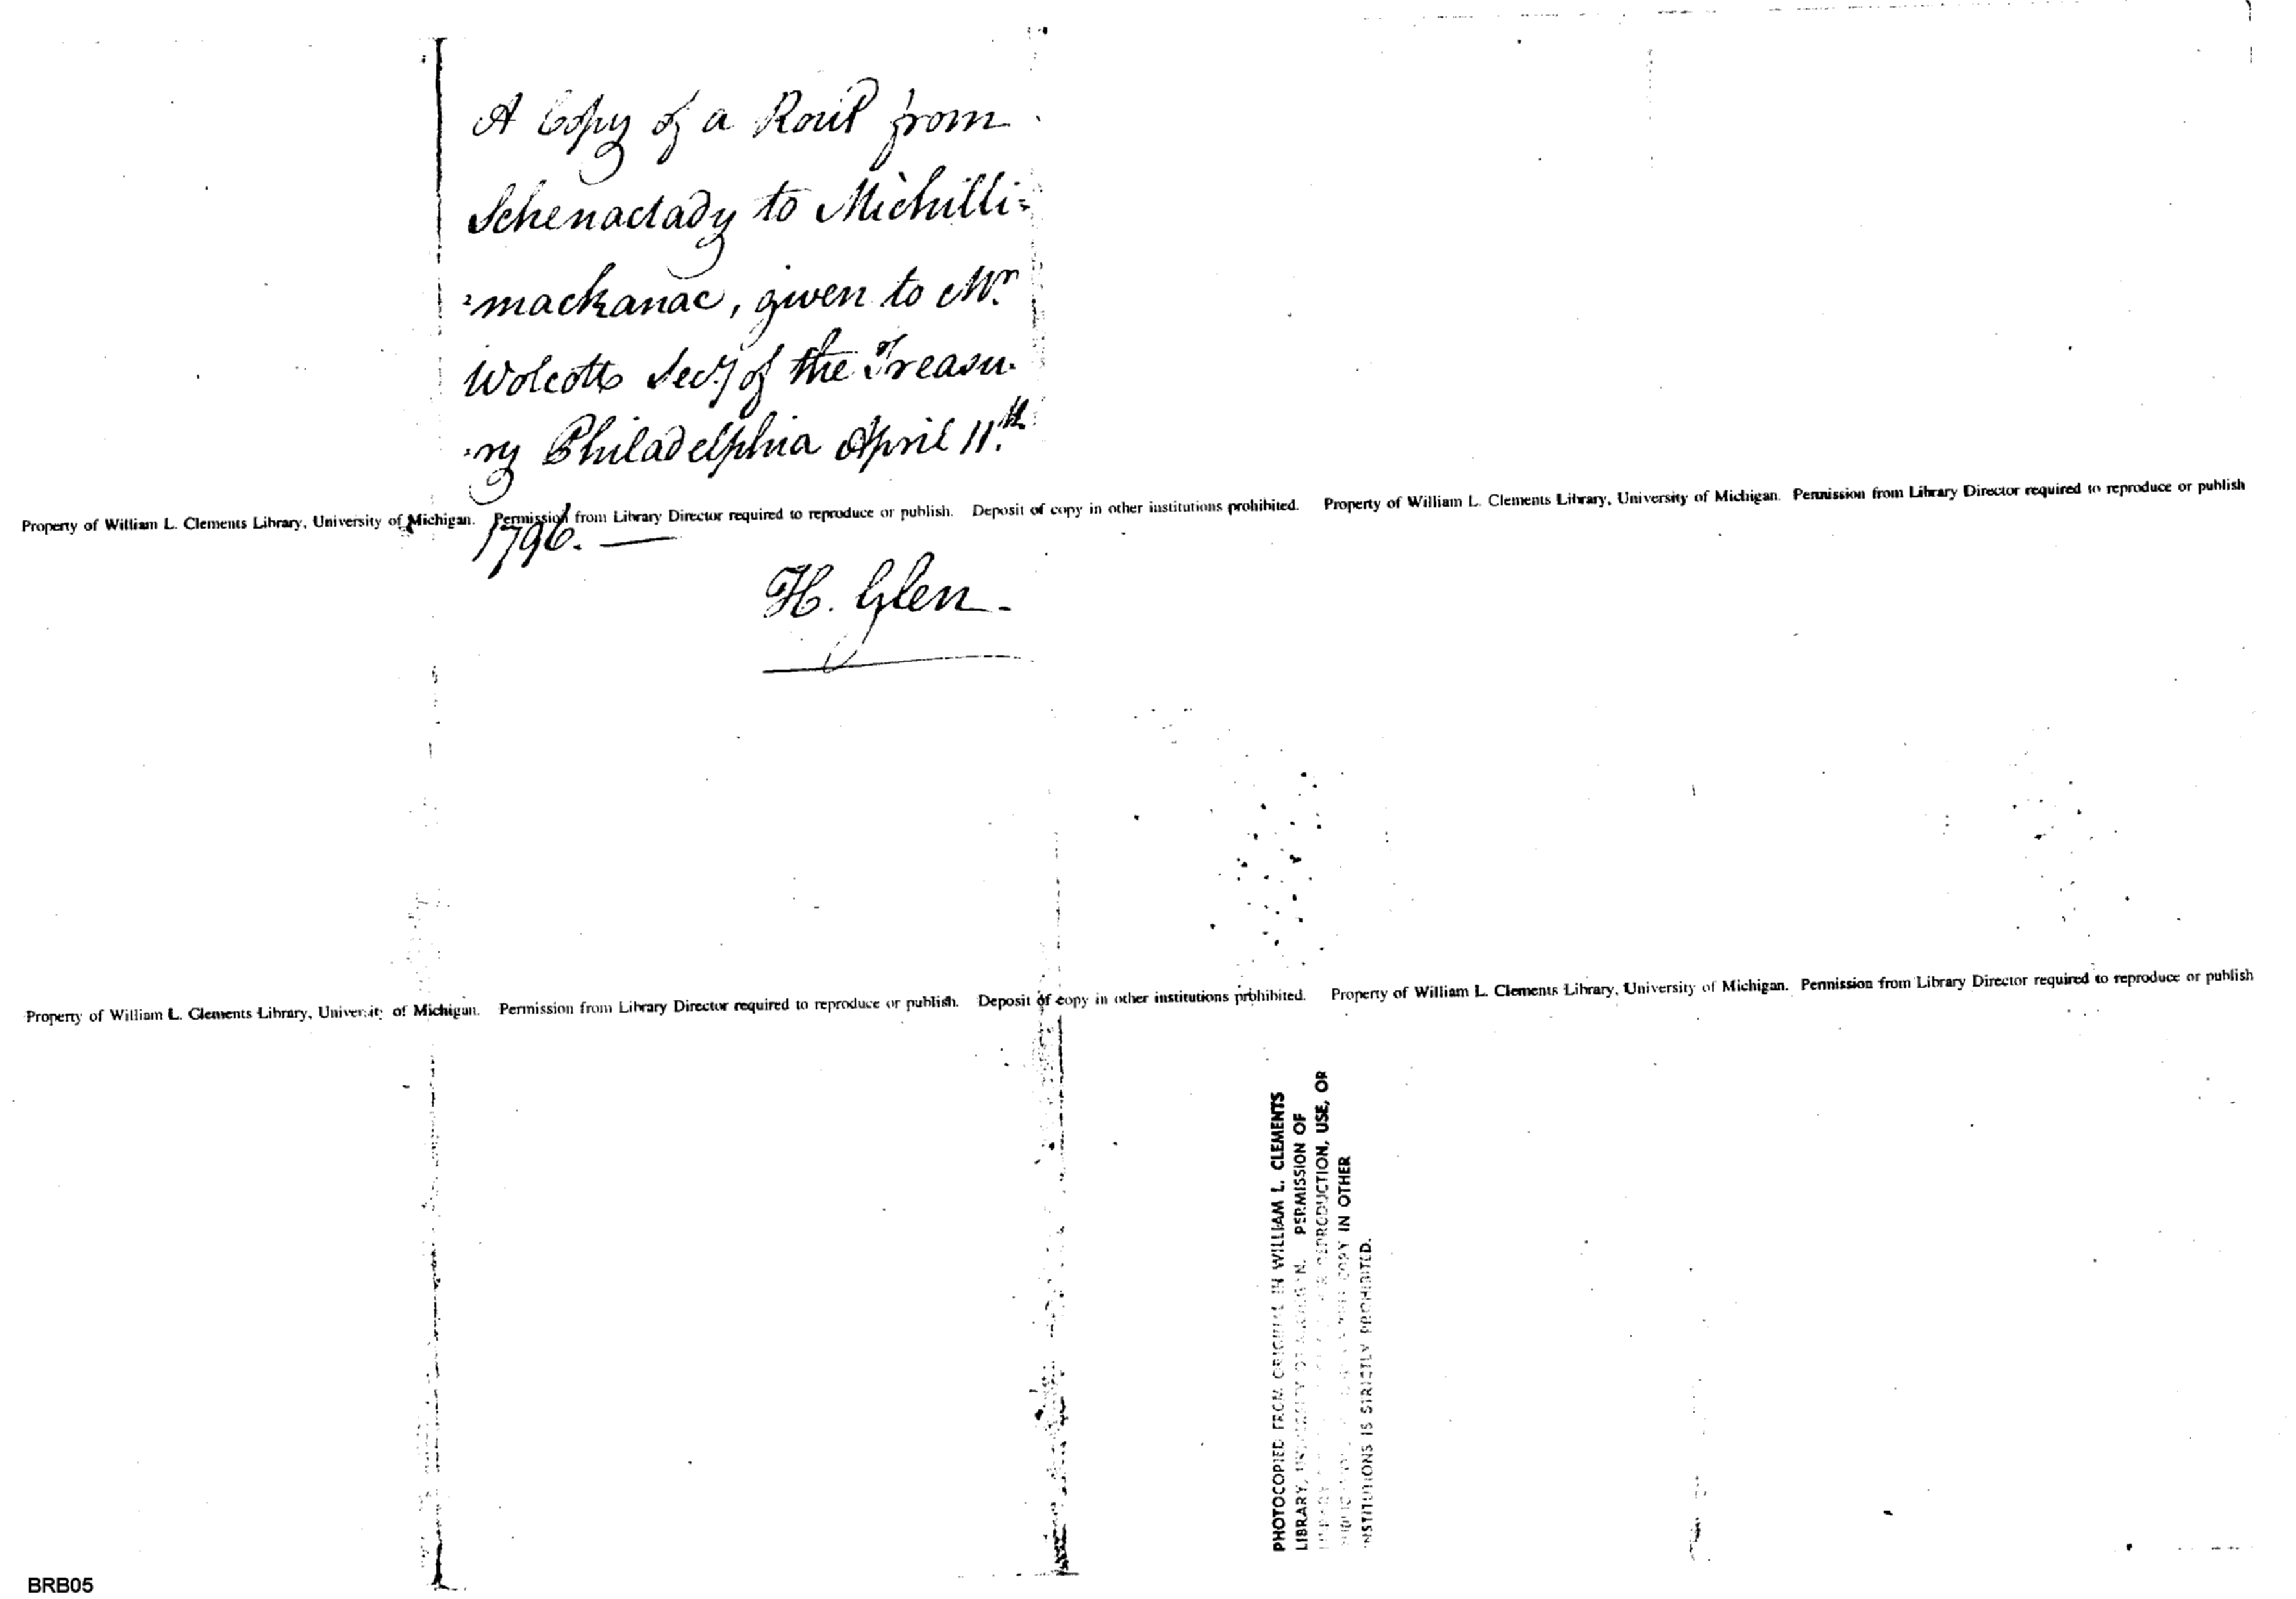 A Copy of a Rout from
Schenactady to Michilli=
=mackanac, given to Mr.
Wolcott Secy of the Treasu-
-ry Philadelphia April 11.th
Property of William L. Clements Library, University of Michigan. Permission from Library Director required to reproduce or publish. Deposit of copy in other institutions prohibited. Property of William L. Clements Library, University of Michigan. Permission from Library Director required to reproduce or publish
1796. —
H. Glen -
Property of William L. Clements Library, University of Michigan. Permission from Library Director required to reproduce or publish. Deposit of copy in other institutions prohibited. Property of William L. Clements Library, University of Michigan. Permission from Library Director required to reproduce or publish
PHOTOCOPIED FROM ORIGINAL IN WILLIAM L. CLEMENTS
LIBRARY, UNIVERSITY OF MICHIGAN. PERMISSION OF
REPRODUCTION, USE, OR
COPY IN OTHER
INSTITUTIONS IS STRICTLY PROHIBITED.
BRB05